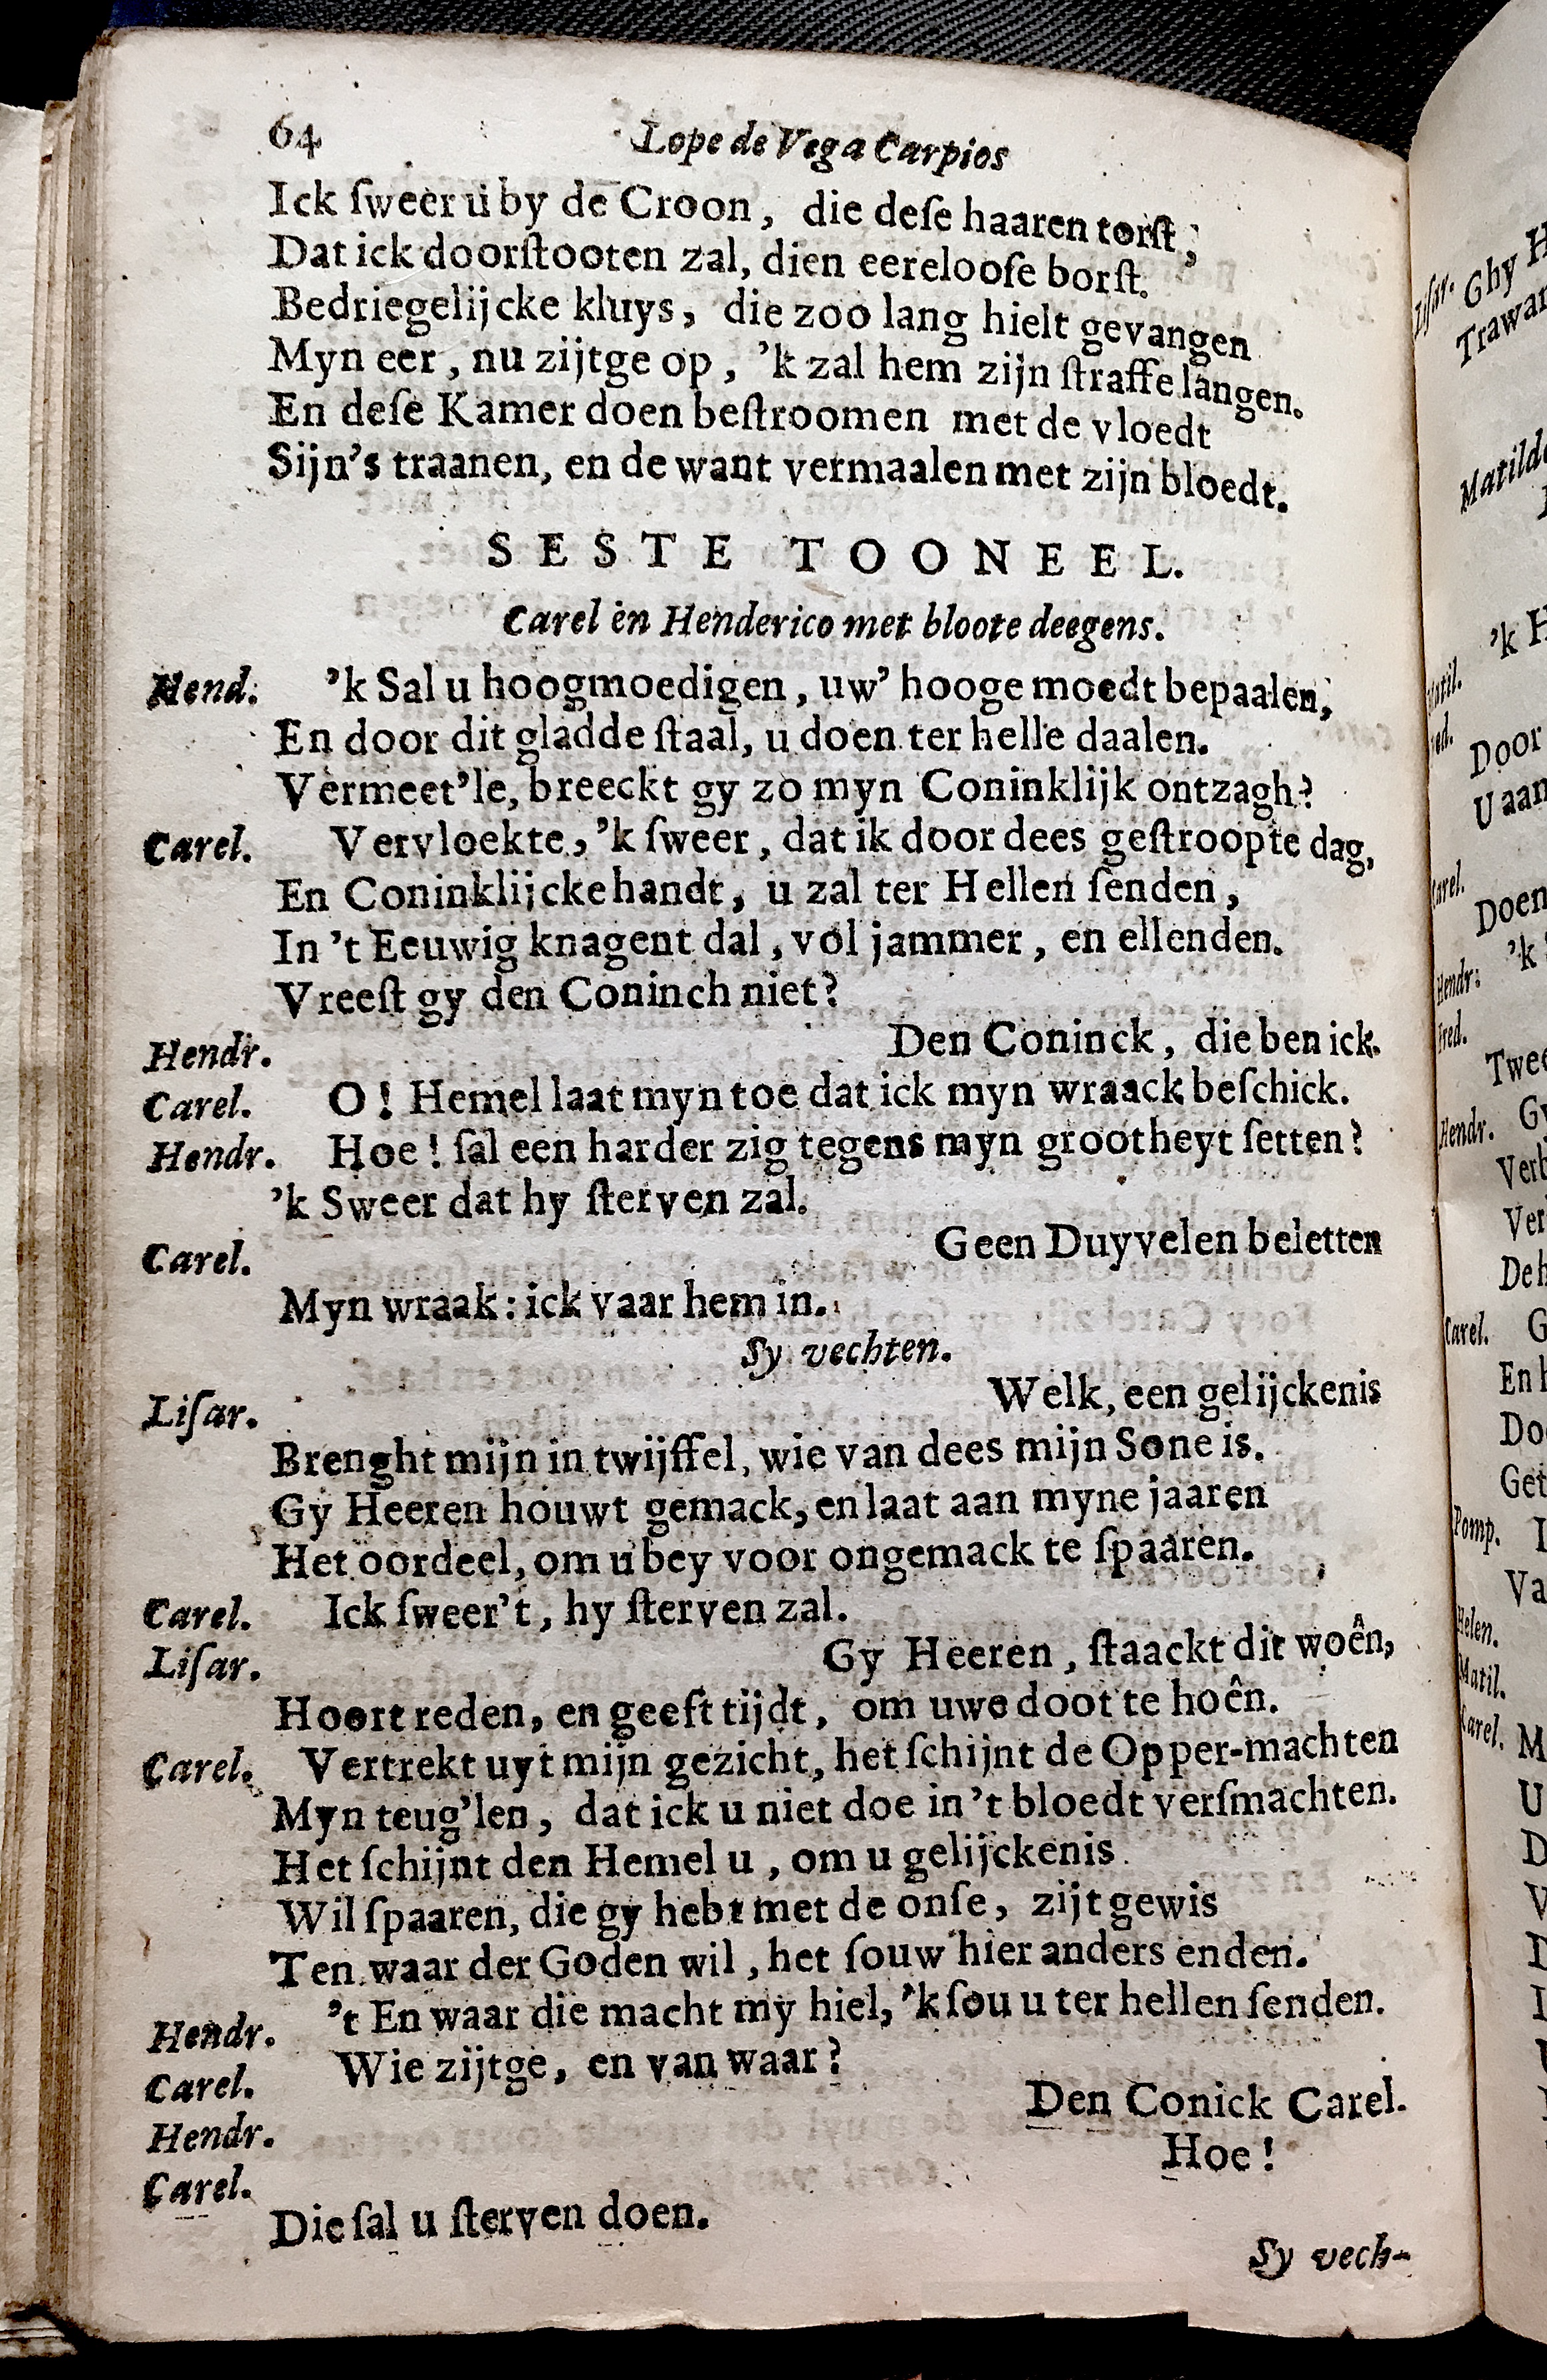 64 Lope de Vega Carpios
Ick ſweer u by de Croon, die deſe haaren torſt,
Dat ick doorſtooten zal, dien eerelooſe borſt.
Bedriegelijcke kluys, die zoo lang hielt gevangen
Myn eer, nu zijtge op, 'k zal hem zijn ſtraffe langen.
En deſe Kamer doen beſtroomen met de vloedt
Sijn's traanen, en de want vermaalen met zijn bloedt.
SESTE TOONEEL.
Carel en Henderico met bloote deegens.
Hend. 'k Sal u hoogmoedigen, uw' hooge moedt bepaalen,
En door dit gladde ſtaal, u doen ter helle daalen.
Vermeet'le, breeckt gy zo myn Coninklijk ontzagh?
Carel. Vervloekte, 'k ſweer, dat ik door dees geſtroopte dag,
En Coninklijcke handt, u zal ter Hellen ſenden,
In 't Eeuwig knagent dal, vol jammer, en ellenden.
Vreeſt gy den Coninch niet?
Hendr. Den Coninck, die ben ick.
Carel. O! Hemel laat myn toe dat ick myn wraack beſchick.
Hendr. Hoe! ſal een harder zig tegens myn grootheyt ſetten?
'k Sweer dat hy ſterven zal.
Carel. Geen Duyvelen beletten
Myn wraak: ick vaar hem in.
Sy vechten.
Liſar. Welk, een gelijckenis
Brenght mijn in twijffel, wie van dees mijn Sone is.
Gy Heeren houwt gemack, en laat aan myne jaaren
Het oordeel, om u bey voor ongemack te ſpaaren.
Carel. Ick ſweer't, hy ſterven zal.
Liſar. Gy Heeren, ſtaackt dit woên,
Hoort reden, en geeft tijdt, om uwe doot te hoên.
Carel. Vertrekt uyt mijn gezicht, het ſchijnt de Opper-machten
Myn teug'len, dat ick u niet doe in 't bloedt verſmachten.
Het ſchijnt den Hemel u, om u gelijckenis
Wil ſpaaren, die gy hebt met de onſe, zijt gewis
Ten waar der Goden wil, het ſouw hier anders enden.
Hendr. 't En waar die macht my hiel, 'k ſou u ter hellen ſenden.
Carel. Wie zijtge, en van waar?
Hendr. Den Conick Carel.
Carel. Hoe!
Die ſal u ſterven doen.
Sy vech-
Liſar. Ghy
Matild
'k
Door
U aan
Carel.
Doen
'k
Hendr:
Fred.
Twee
Hendr. Gy
Carel. G
Pomp.
Va
Helen.
Matil.
Carel.